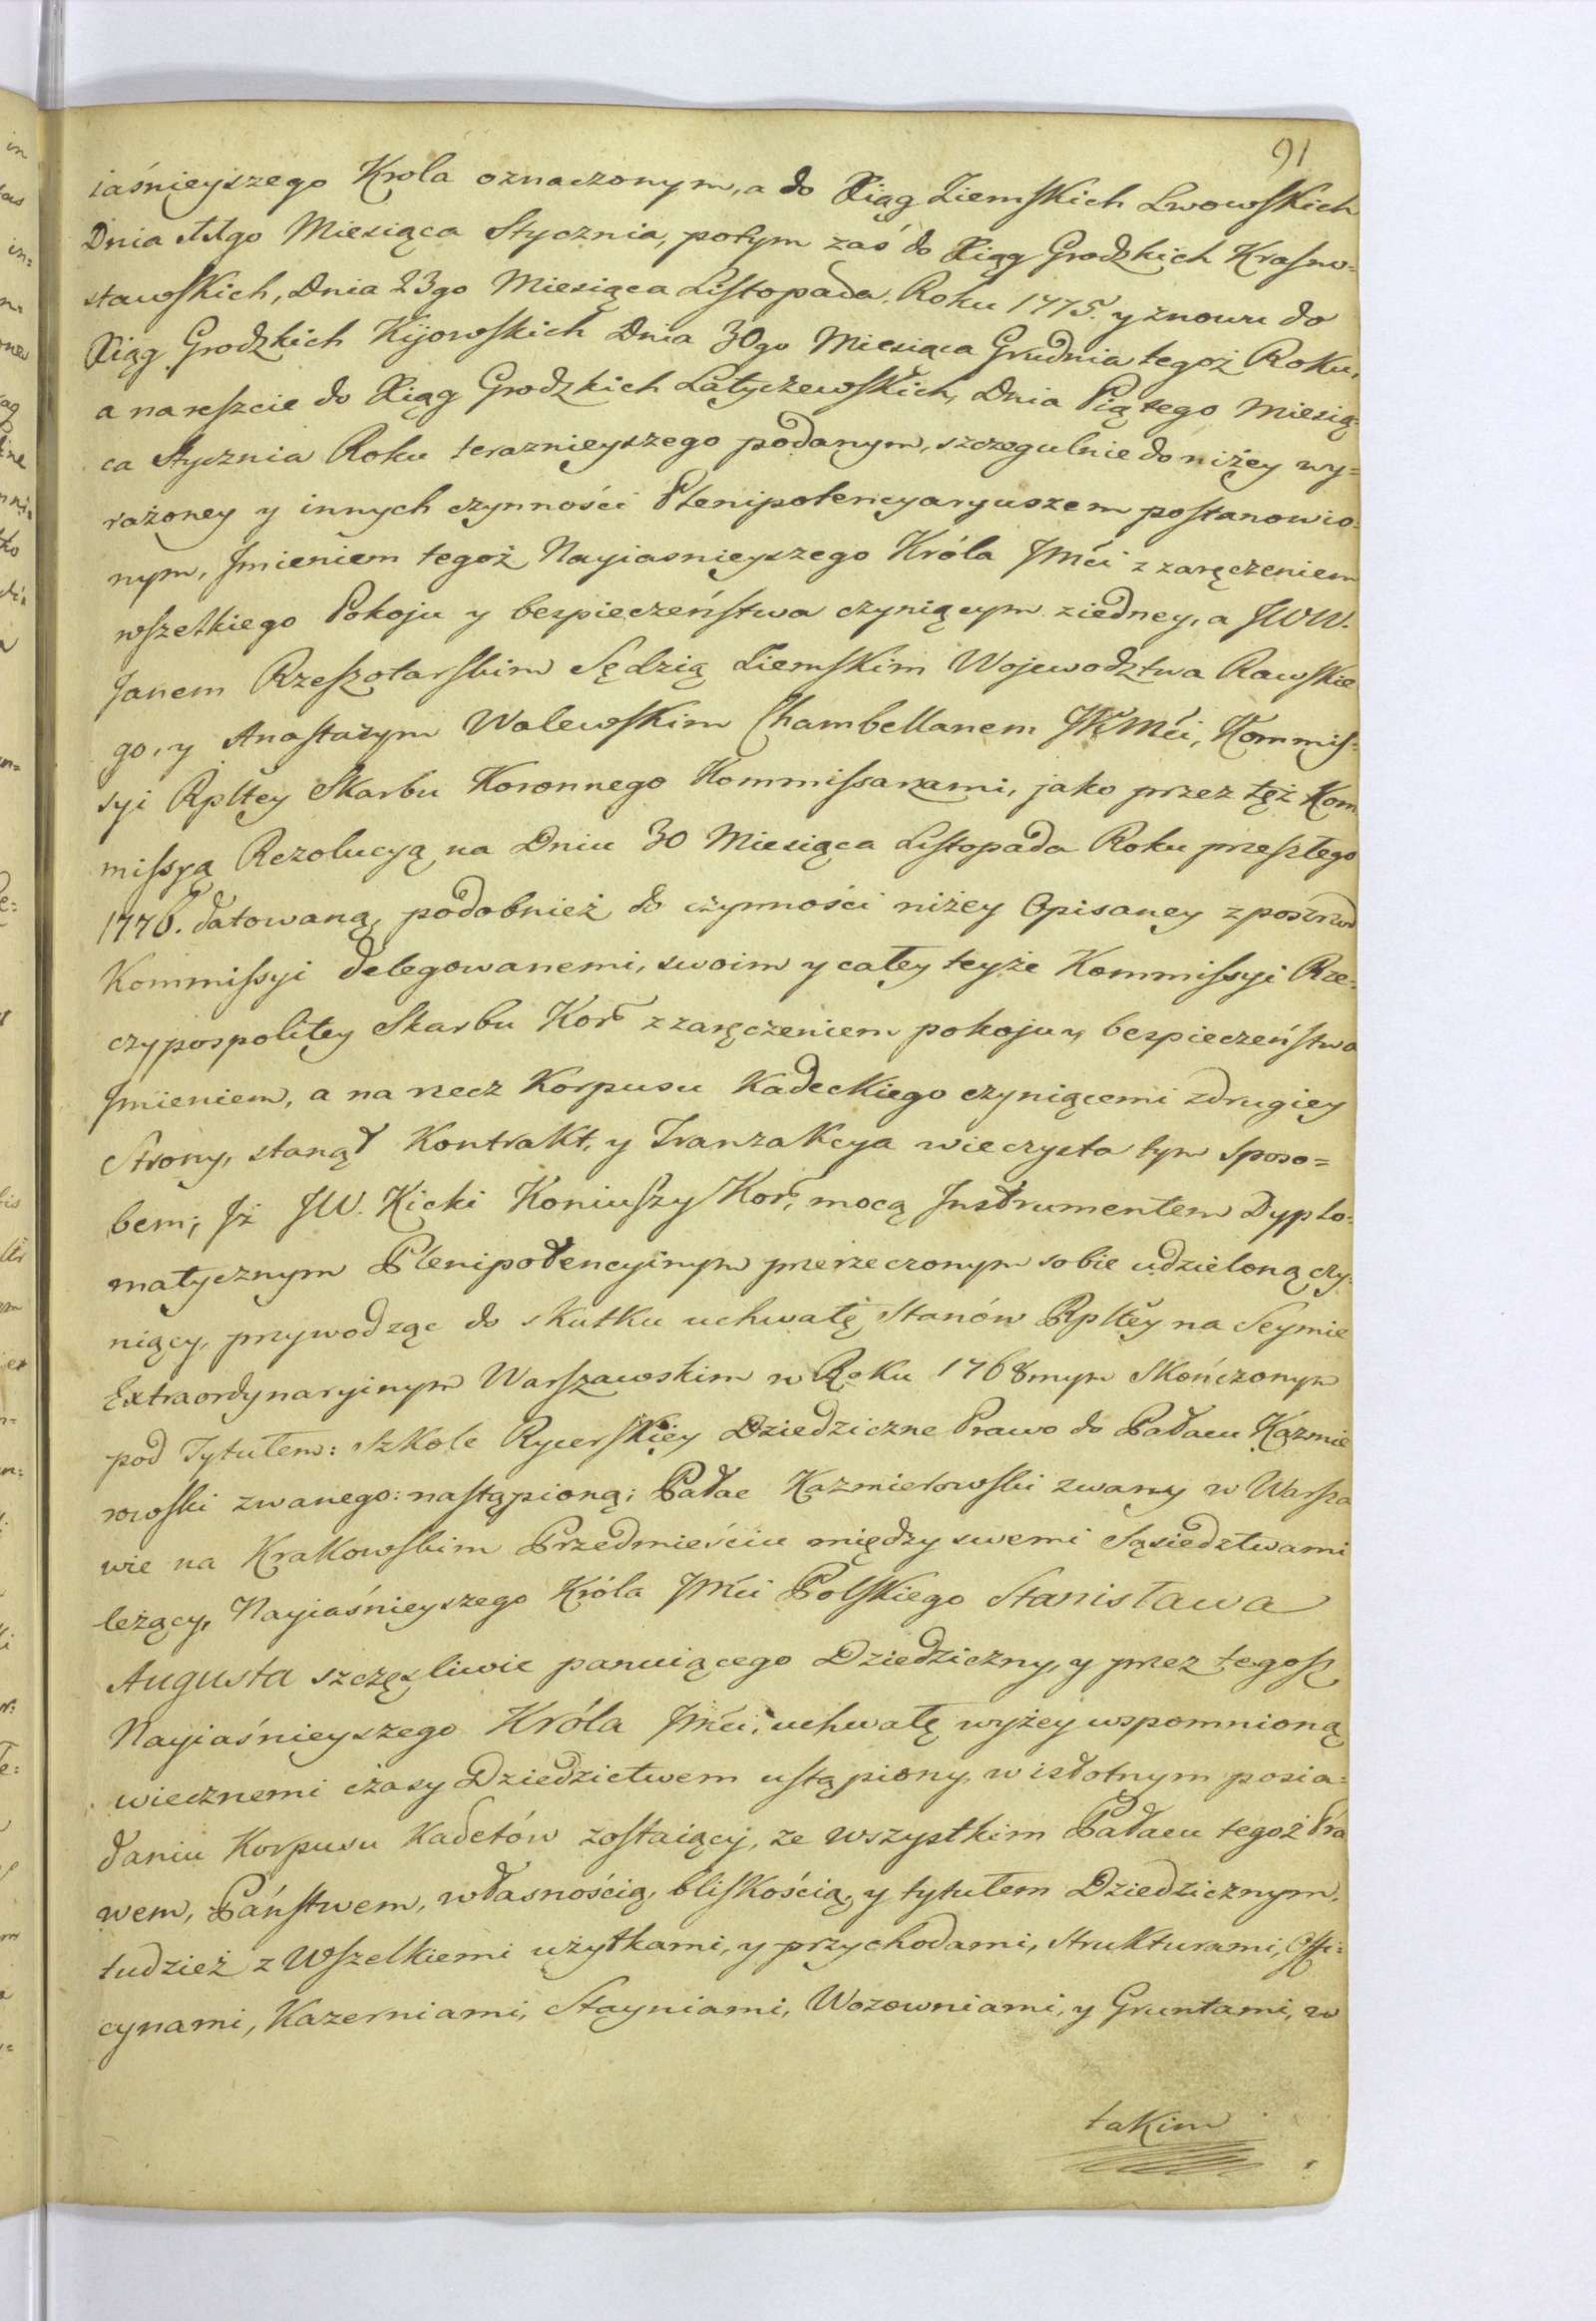 91
iaśnieyszego Krola oznaczonym, a do Xiąg Ziemskich Lwowskich
Dnia 11go Miesiąca Stycznia, potym zaś do Xiąg Grodzkich Krasno=
stawskich, Dnia 23go Miesiąca Listopada. Roku 1775. y znowu do
Xiąg Grodzkich Kijowskich Dnia 30go Miesiąca Grudnia tegoż Roku,
a nareszcie do Xiąg Grodzkich Latyczewskich, Dnia Piątego Miesią=
ca Stycznia Roku teraznieyszego podanym, szczegulnie do niżey wy=
rażoney y innych czynności Plenipotencyaryuszem postanowio=
nym, Jmieniem tegoż Nayiasnieyszego Króla JMći z zaręczeniem
wszelkiego Pokoju y bespieczeństwa czyniącym ziedney, a JWW.
Janem Rzeszotarskim Sędzią Ziemskim Wojewodztwa Rawskie
go, y Anastazym Walewskim Chambellanem JKMći, Kommis=
syi Rpltey Skarbu Koronnego Kommissarzami, jako przez tęż Kom
missyą Rezolucyą na Dniu 30 Miesiąca Listopada Roku przeszłego
1776. datowaną, podobnież do czynności niżey Opisaney z pośrzod
Kommissyi delegowanemi, swoim y całey teyże Kommissyi Rze=
czypospolitey Skarbu Kor: z zaręczeniem pokoju y bespieczeństwa
Jmieniem, a na rzecz Korpusu Kadeckiego czyniącemi zdrugiey
Strony, stanął Kontrakt, y Tranzakcya wieczysta tym sposo=
bem; Jż JW. Kicki Koniuszy Kor: mocą Instrumentem Dyplo=
matycznym Plenipotencyinym przerzeczonym sobie udzieloną czy=
niący, przywodząc do skutku uchwałę Stanów Rpltey na Seymie
Extraordynaryinym Warszawskim w Roku 1768mym Skończonym
pod Tytułem: Szkole Rycerskiey Dziedziczne Prawo do Pałacu Kazmie
rowski zwanego: nastąpioną; Pałac Kazmierowski zwany w Warsza
wie na Krakowskim Przedmieściu między swemi Sąsiedztwami
leżący, Nayiaśnieyszego Króla JMći Polskiego Stanisława
Augusta szczęsliwie panuiącego Dziedziczny, y przez tegosz
Nayiaśnieyszego Króla JMći, uchwałę wyżey wspomnioną
wiecznemi czasy Dziedzictwem ustąpiony, w istotnym posia=
daniu Korpusu Kadetów zostaiący, ze wszystkim Pałacu tegoż Pra
wem, Państwem, własnością, bliskością, y tytułem Dziedzicznym,
tudzież z Wszelkiemi użytkami, y przychodami, strukturami, Offi=
cynami, Kazerniami, Stayniami, Wozowniami, y Gruntami, w
takim